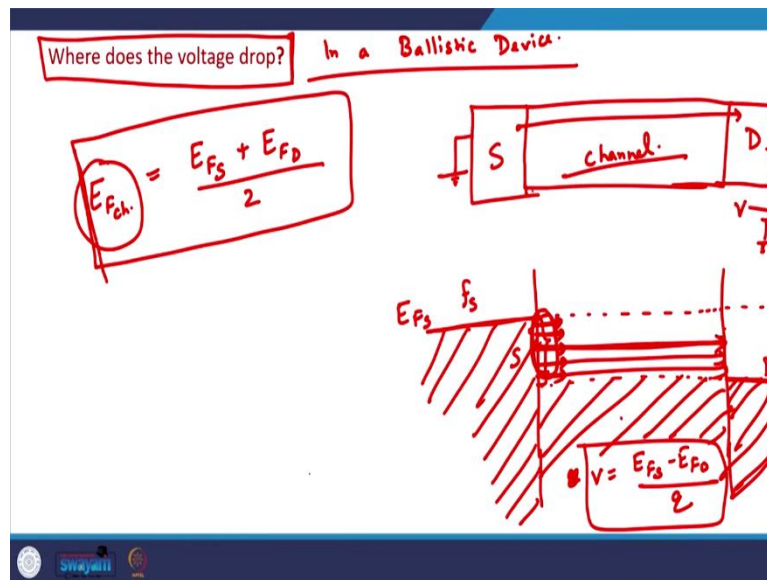 Where does the voltage drop?
In a Ballistic Device.
E_Fch. = E_FS + E_FD / 2
S channel. D
V
E_FS f_s
S
V = E_FS - E_FD / q
swayam